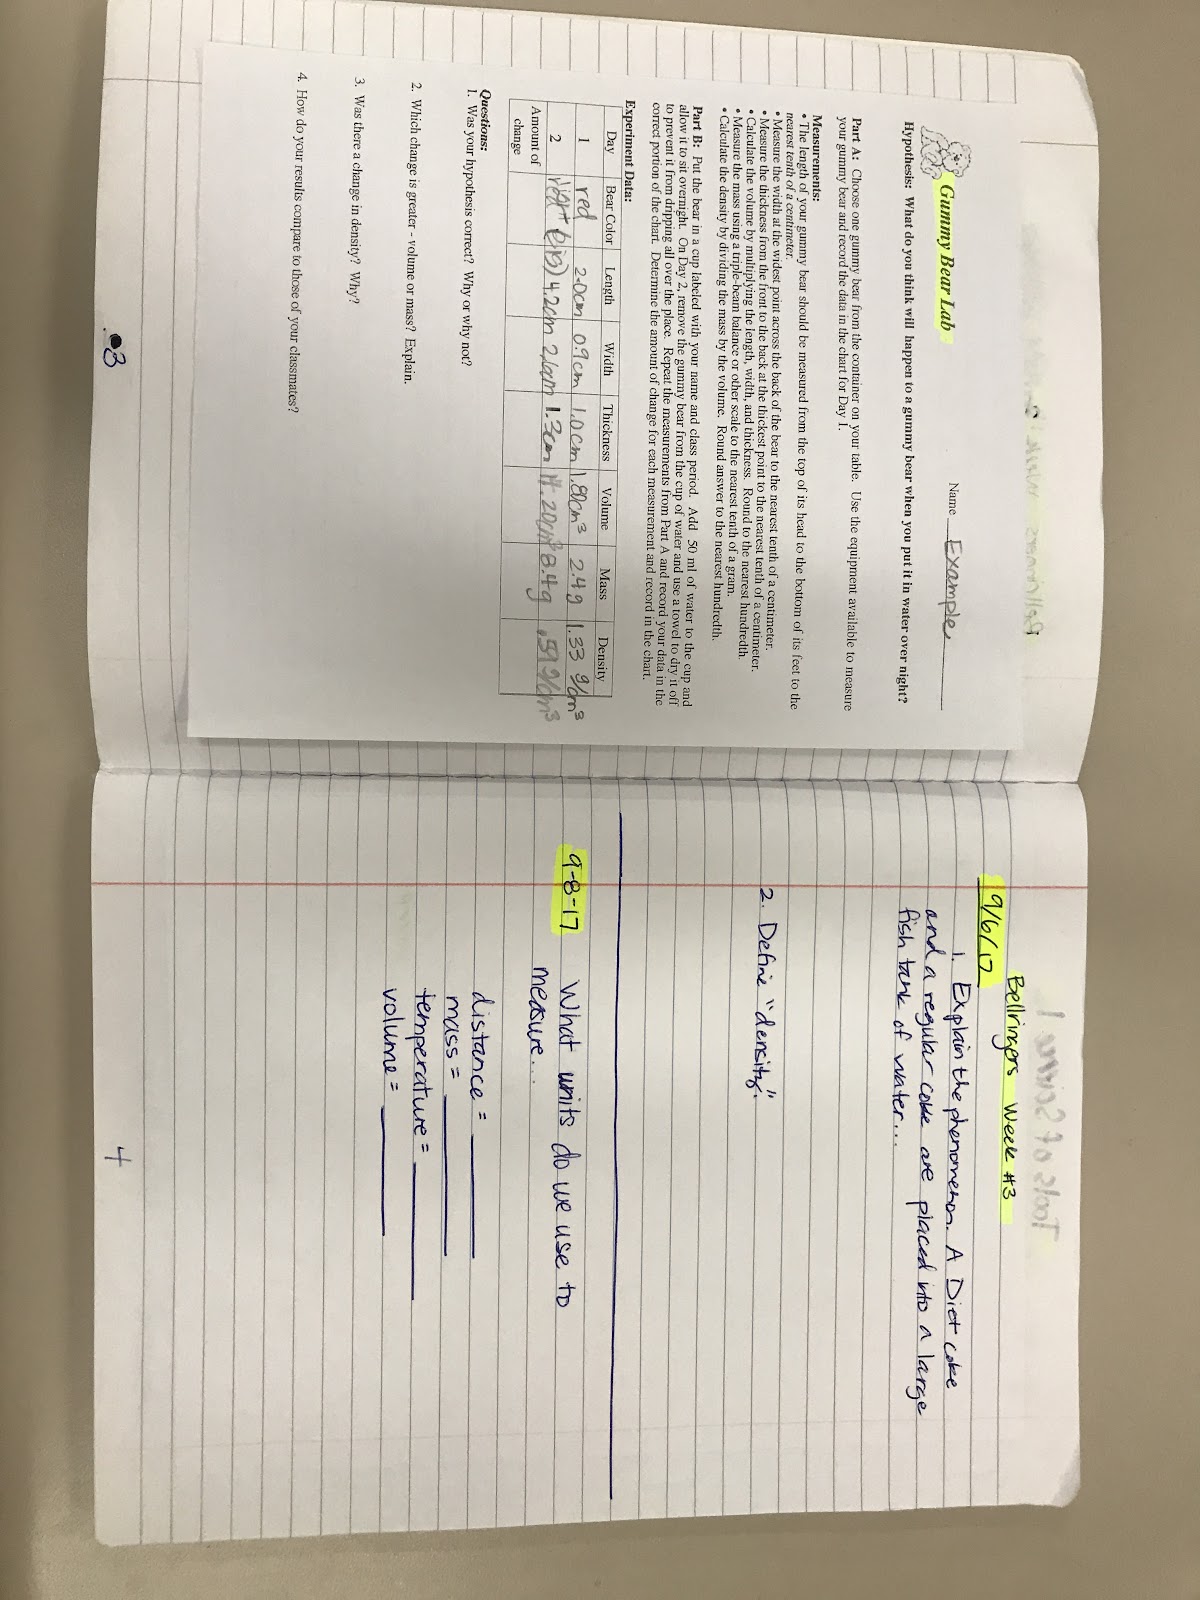 Gummy Bear Lab
Name Example
Hypothesis: What do you think will happen to a gummy bear when you put it in water over night?
Part A: Choose one gummy bear from the container on your table. Use the equipment available to measure
your gummy bear and record the data in the chart for Day 1.
Measurements:
• The length of your gummy bear should be measured from the top of its head to the bottom of its feet to the
nearest tenth of a centimeter.
• Measure the width at the widest point across the back of the bear to the nearest tenth of a centimeter.
• Measure the thickness from the front to the back at the thickest point to the nearest tenth of a centimeter.
• Calculate the volume by multiplying the length, width, and thickness. Round to the nearest hundredth.
• Measure the mass using a triple-beam balance or other scale to the nearest tenth of a gram.
• Calculate the density by dividing the mass by the volume. Round answer to the nearest hundredth.
Part B: Put the bear in a cup labeled with your name and class period. Add 50 ml of water to the cup and
allow it to sit overnight. On Day 2, remove the gummy bear from the cup of water and use a towel to dry it off
to prevent it from dripping all over the place. Repeat the measurements from Part A and record your data in the
correct portion of the chart. Determine the amount of change for each measurement and record in the chart.
Experiment Data:
Day Bear Color Length Width Thickness Volume Mass Density
1 red 2.0cm 0.9cm 1.0cm 1.80cm³ 2.4g 1.33 g/cm³
2 4.2cm 1.3cm 8.4g .59 g/cm³
Amount of
change
Questions:
1. Was your hypothesis correct? Why or why not?
2. Which change is greater - volume or mass? Explain.
3. Was there a change in density? Why?
4. How do your results compare to those of your classmates?
3
Bellringers Week #3
9/6/17
1. Explain the phenomenon. A Diet coke
and a regular coke are placed into a large
fish tank of water...
2. Define "density".
9-8-17 What units do we use to
measure...
distance =
mass =
temperature =
volume =
4